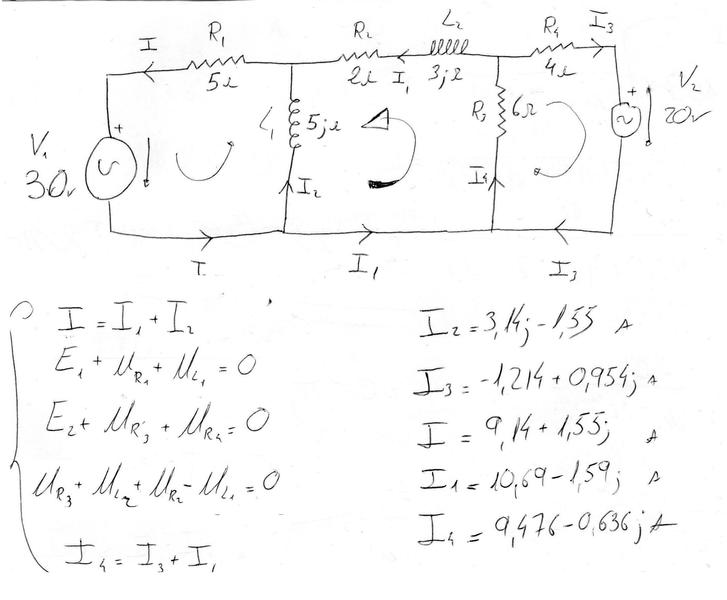 I R₁ R₂ L₂ R₄ I₃
5Ω 2Ω I₁ 3jΩ 4Ω
V₁ + L₁ 5jΩ R₃ 6Ω + V₂
30v 20v
I₂ I₄
I I₁ I₃
I = I₁ + I₂
E₁ + U_R₁ + U_L₁ = 0
E₂ + U_R₃ + U_R₄ = 0
U_R₃ + U_L₂ + U_R₂ - U_L₁ = 0
I₄ = I₃ + I₁
I₂ = 3,14j - 1,55 A
I₃ = -1,214 + 0,954j A
I = 9,14 + 1,55j A
I₁ = 10,69 - 1,59j A
I₄ = 9,476 - 0,636j A